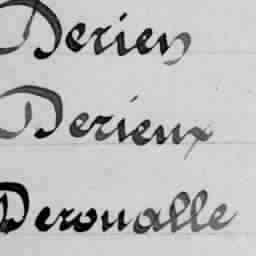 Derien
Derieux
Deroualle